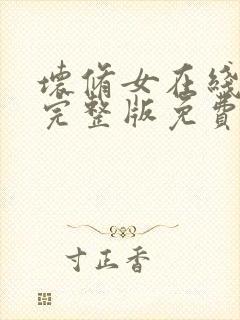 壊脩女在綫
完整版免費
寸正香